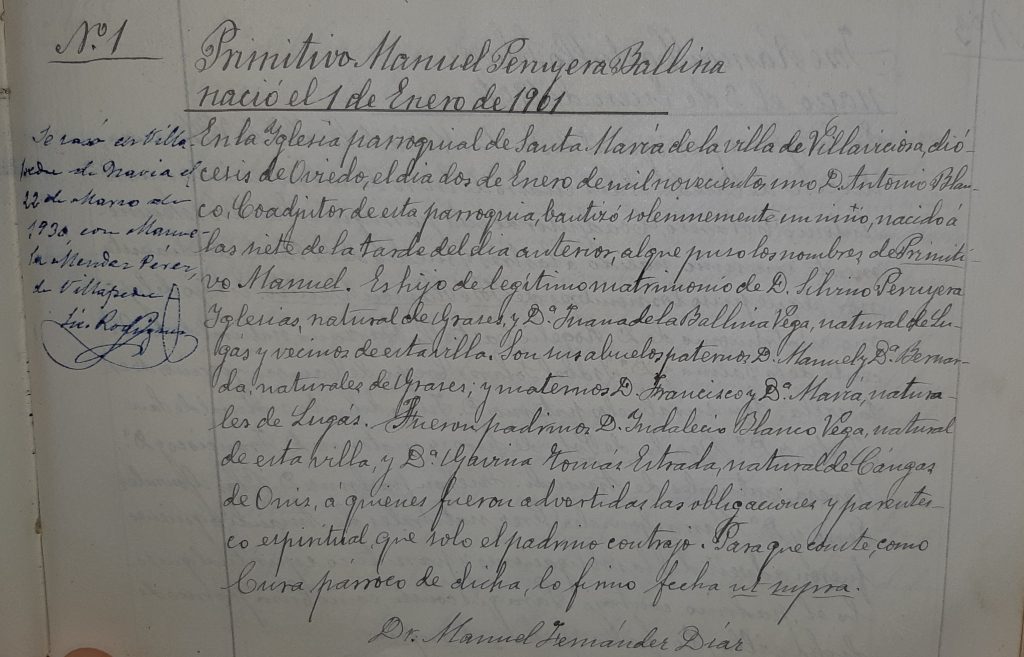 N.º 1
Primitivo Manuel Peruyera Ballina
nació el 1 de Enero de 1901
Se casó en Villa-
pedre de Navia el
22 de Marzo de
1930 con Manue-
la Méndez Pérez,
de Villapedre
En la Yglesia parroquial de Santa María de la villa de Villaviciosa, dió-
cesis de Oviedo, el dia dos de Enero de mil novecientos uno D. Antonio Blan-
co, Coadjutor de esta parroquia, bautizó solemnemente un niño, nacido á
las siete de la tarde del dia anterior, al que puso los nombres de Primiti-
vo Manuel. Es hijo de legítimo matrimonio de D. Silvino Peruyera
Yglesias, natural de Grases, y D.ª Juana de la Ballina Vega, natural de Lu-
gás y vecinos de esta villa. Son sus abuelos paternos D. Manuel y D.ª Bernar-
da, naturales de Grases; y maternos D. Francisco y D.ª María, natura-
les de Lugás. Fueron padrinos D. Indalecio Blanco Vega, natural
de esta villa, y D.ª Gavina Tomás Estrada, natural de Cángas
de Onis, á quienes fueron advertidas las obligaciones y parentes-
co espiritual, que solo el padrino contrajo. Para que conste, como
Cura párroco de dicha, lo firmo fecha ut supra.
Dr. Manuel Fernández Díaz